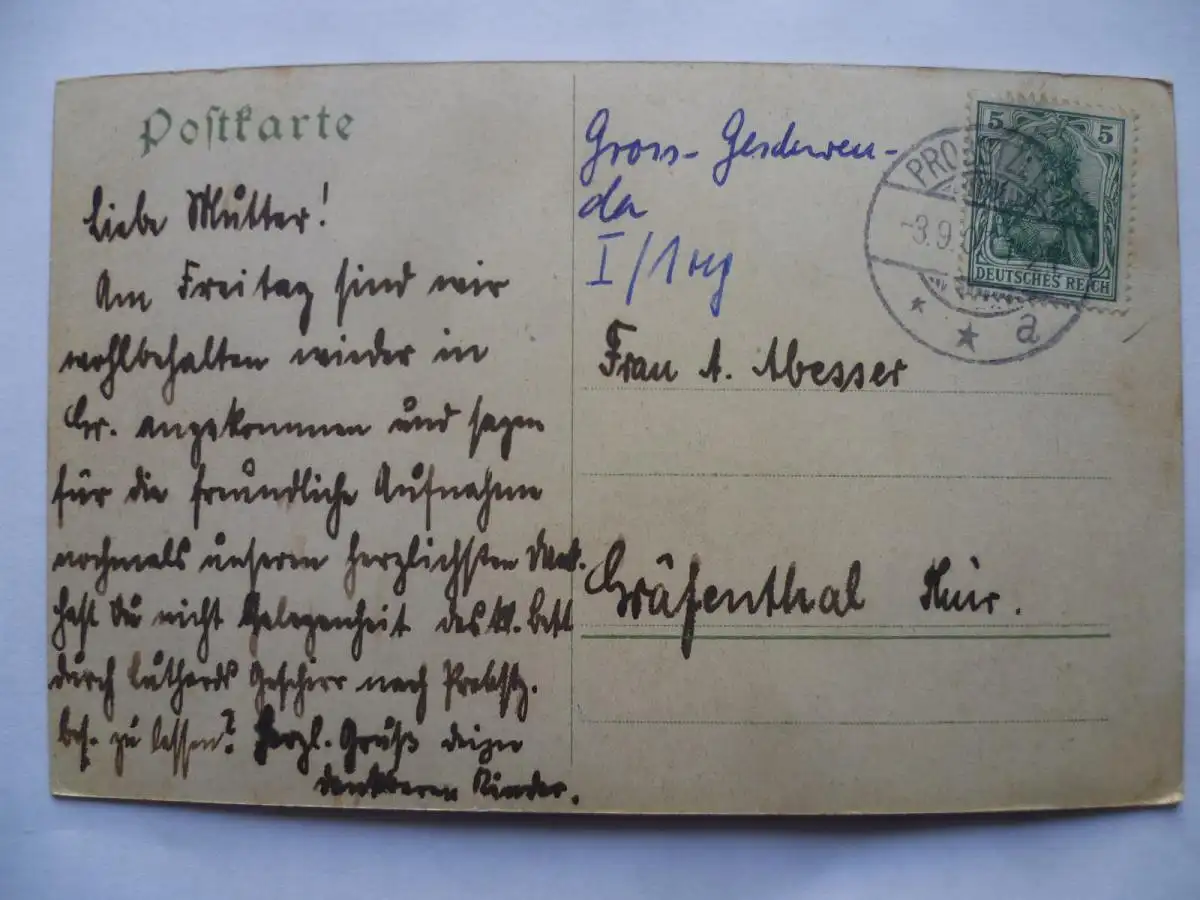 Postkarte
Liebe Mutter!
Am Freitag sind wir
wohlbehalten wieder in
Gr. angekommen und sagen
für die freundliche Aufnahme
nochmals unseren herzlichsten Dank.
Hast Du nicht Gelegenheit das W. Bett
durch Lutherds Geschirr nach Probstz.
bef. zu lassen? Herzl. Gruß deine
dankbaren Kinder.
Gross-Geschwen-
da
I/1
Frau A. Abesser
Gräfenthal Thür.
PRO
-3.9.
a
5 5
DEUTSCHES REICH